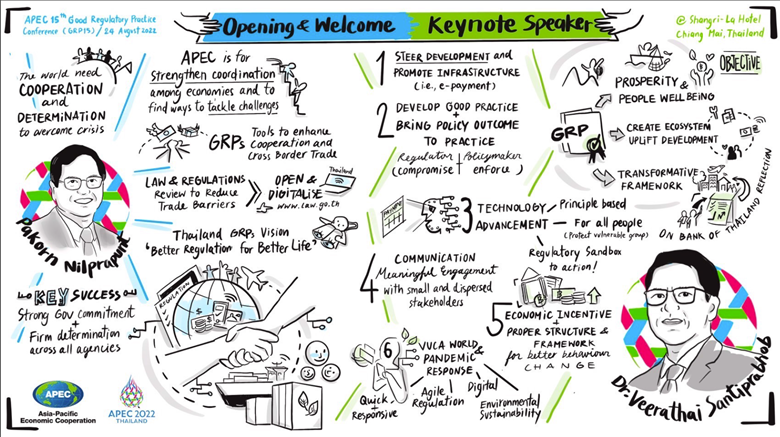 APEC 15th Good Regulatory Practice
Conference (GRP15) / 24 August 2022
Opening & Welcome
Keynote Speaker
@ Shangri-La Hotel
Chiang Mai, Thailand
The world need
COOPERATION
and
DETERMINATION
to overcome crisis
Pakorn Nilprapunt
KEY SUCCESS
Strong Gov commitment
+
Firm determination
across all agencies
APEC
Asia-Pacific
Economic Cooperation
APEC 2022
THAILAND
APEC is for
Strengthen coordination
among economies and to
find ways to tackle challenges
GRPs
Tools to enhance
Cooperation and
Cross Border Trade
LAW & REGULATIONS
Review to Reduce
Trade Barriers
OPEN &
DIGITALISE
www.law.go.th
Thailand
Thailand GRPs Vision
"Better Regulation for Better Life"
REGULATION
1
STEER DEVELOPMENT and
PROMOTE INFRASTRUCTURE
(i.e., e-payment)
2
DEVELOP GOOD PRACTICE
+
BRING POLICY OUTCOME
TO PRACTICE
Regulator + Policymaker
(compromise enforce)
3
TECHNOLOGY
ADVANCEMENT
Principle based
For all people
(Protect vulnerable group)
Regulatory Sandbox
to action!
4
COMMUNICATION
Meaningful Engagement
with small and dispersed
stakeholders
5
ECONOMIC INCENTIVE
PROPER STRUCTURE &
FRAMEWORK
for better behaviour
CHANGE
6
VUCA WORLD &
PANDEMIC
RESPONSE
Quick
Responsive
Agile
Regulation
Digital
Environmental
Sustainability
OBJECTIVE
GRP
PROSPERITY &
PEOPLE WELL BEING
CREATE ECOSYSTEM
UPLIFT DEVELOPMENT
TRANSFORMATIVE
FRAMEWORK
ON BANK OF THAILAND REFLECTION
Dr. Veerathai Santiprabhob